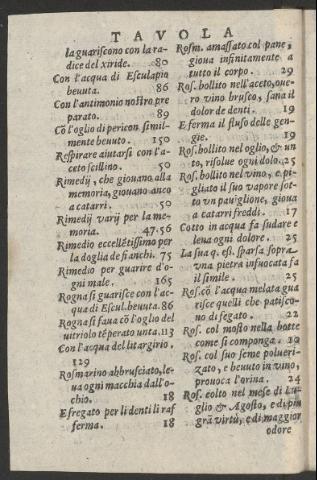 TAVOLA
la guariscono con la ra-
dice del xiride. 80
Con l'acqua di Esculapio
beuuta. 86
Con l'antimonio nostro pre
parato. 89
Cõ l'oglio di pericon simil-
mente beuuto. 150
Respirare aiutarsi con l'a-
ceto scillino. 50
Rimedij, che giouano alla
memoria, giouano anco
a catarri. 50
Rimedij varij per la me-
moria. 47.56
Rimedio eccellẽtissimo per
la doglia de fianchi. 75
Rimedio per guarire d'o-
gni male. 165
Rogna si guarisce con l'ac-
qua di Escul.beuuta. 86
Rogna si faua cõ l'oglio del
uitriolo tẽperato unta. 113
Con l'acqua del litargirio.
129
Rosmarino abbrusciato, le-
ua ogni macchia dall'o-
chio. 18
E fregato per li denti li raf
ferma. 18
Rosm. amassato col pane,
gioua infinitamente a
tutto il corpo. 29
Ros. bollito nell'aceto, oue-
ro vino brusco, sana il
dolor de denti. 19
E ferma il fluso delle gen-
gie. 19
Ros. bollito nel oglio, & un
to, risolue ogni dolo. 25
Ros. bollito nel vino, e pi-
gliato il suo vapore sot-
to vn pauiglione, gioua
a catarri freddi. 17
Cotto in acqua fa sudare e
leua ogni dolore. 25
La sua q. essi. sparsa sopra
vna pietra infuocata fa
il simile. 25
Ros. cõ l'acqua melata gua
risce quelli che patisco-
no di fegato. 22
Ros. col mosto nella botte
come si componga. 19
Ros. col suo seme polueri-
zato, e beuuto in vino,
prouoca l'orina. 24
Ros. colto nel mese di Lu-
glio & Agosto, e di piu
grã virtù, e di maggior
odore